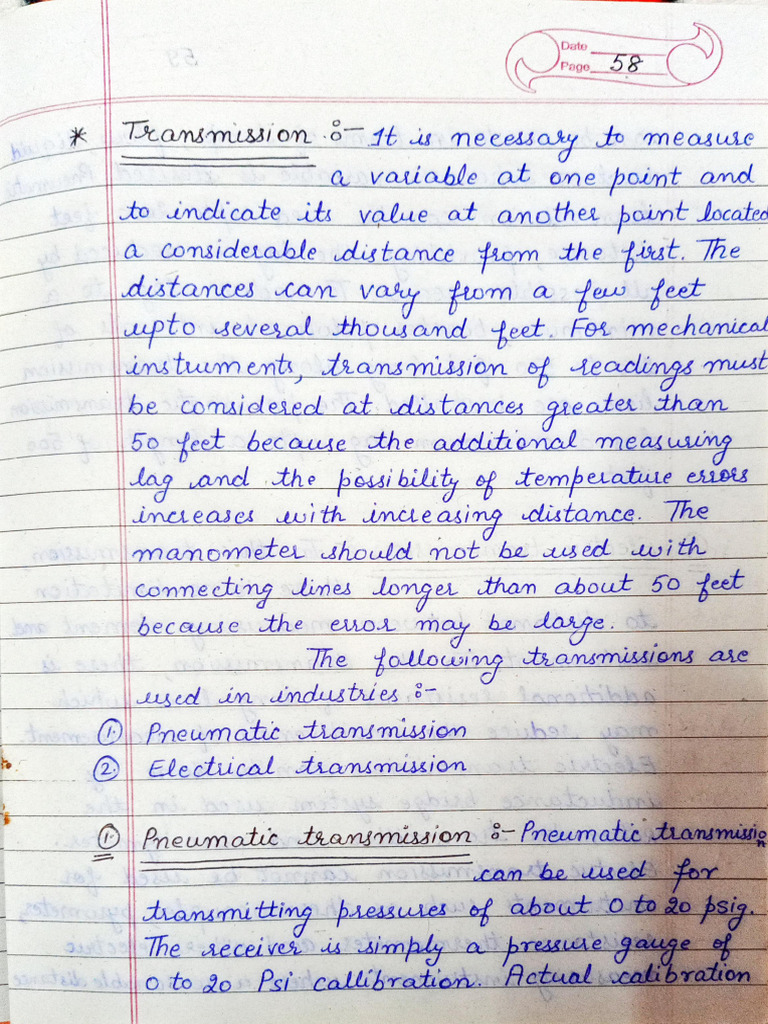 Date
Page 58
* Transmission :- It is necessary to measure
a variable at one point and
to indicate its value at another point located
a considerable distance from the first. The
distances can vary from a few feet
upto several thousand feet. For mechanical
instruments, transmission of readings must
be considered at distances greater than
50 feet because the additional measuring
lag and the possibility of temperature errors
increases with increasing distance. The
manometer should not be used with
connecting lines longer than about 50 feet
because the error may be large.
The following transmissions are
used in industries :-
1. Pneumatic transmission
2. Electrical transmission
1. Pneumatic transmission :- Pneumatic transmission
can be used for
transmitting pressures of about 0 to 20 psig.
The receiver is simply a pressure gauge of
0 to 20 Psi callibration. Actual calibration